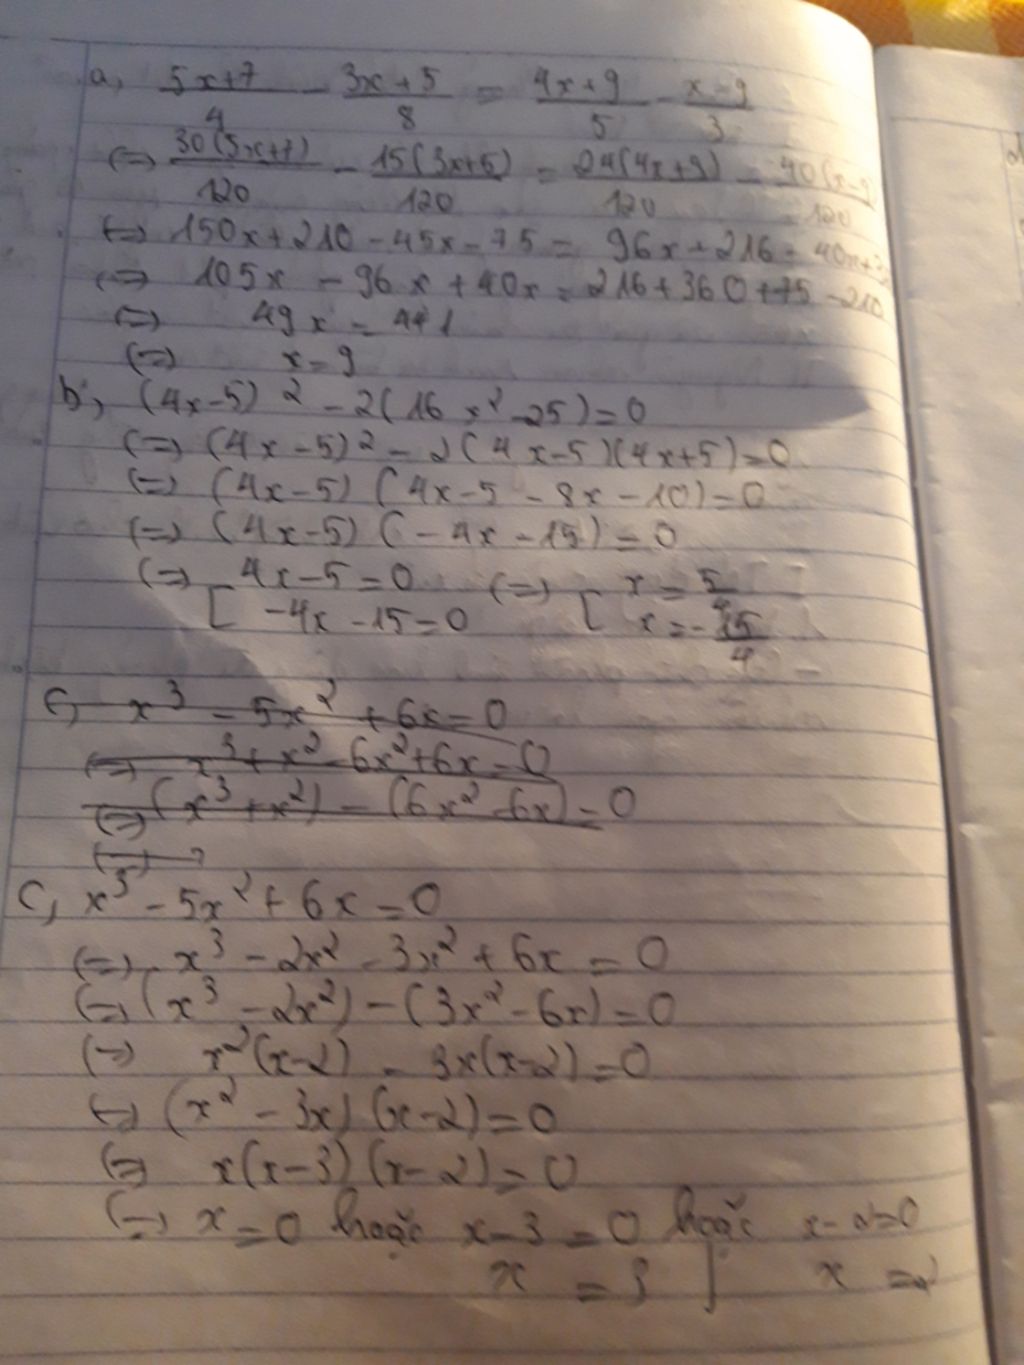 a, (5x+7)/4 - (3x+5)/8 = (4x+9)/5 - (x-9)/3
(=) 30(5x+7)/120 - 15(3x+5)/120 = 24(4x+9)/120 - 40(x-9)/120
(=) 150x+210-45x-75 = 96x+216-40x+3
(=) 105x - 96x + 40x = 216+360+75-210
(=) 49x = 441
(=) x=9
b, (4x-5)² - 2(16x²-25)=0
(=) (4x-5)² - 2(4x-5)(4x+5)=0
(=) (4x-5)(4x-5-8x-10)=0
(=) (4x-5)(-4x-15)=0
(=) [ 4x-5=0 (=) [ x=5/4
-4x-15=0 x=-15/4
c, x³ - 5x² + 6x = 0
(=) x³+x²-6x²+6x=0
(=) (x³+x²)-(6x²-6x)=0
(=)
C, x³-5x²+6x=0
(=) x³-2x²-3x²+6x=0
(=) (x³-2x²)-(3x²-6x)=0
(=) x²(x-2)-3x(x-2)=0
(=) (x²-3x)(x-2)=0
(=) x(x-3)(x-2)=0
(=) x=0 hoặc x-3=0 hoặc x-2=0
x=3 x=2